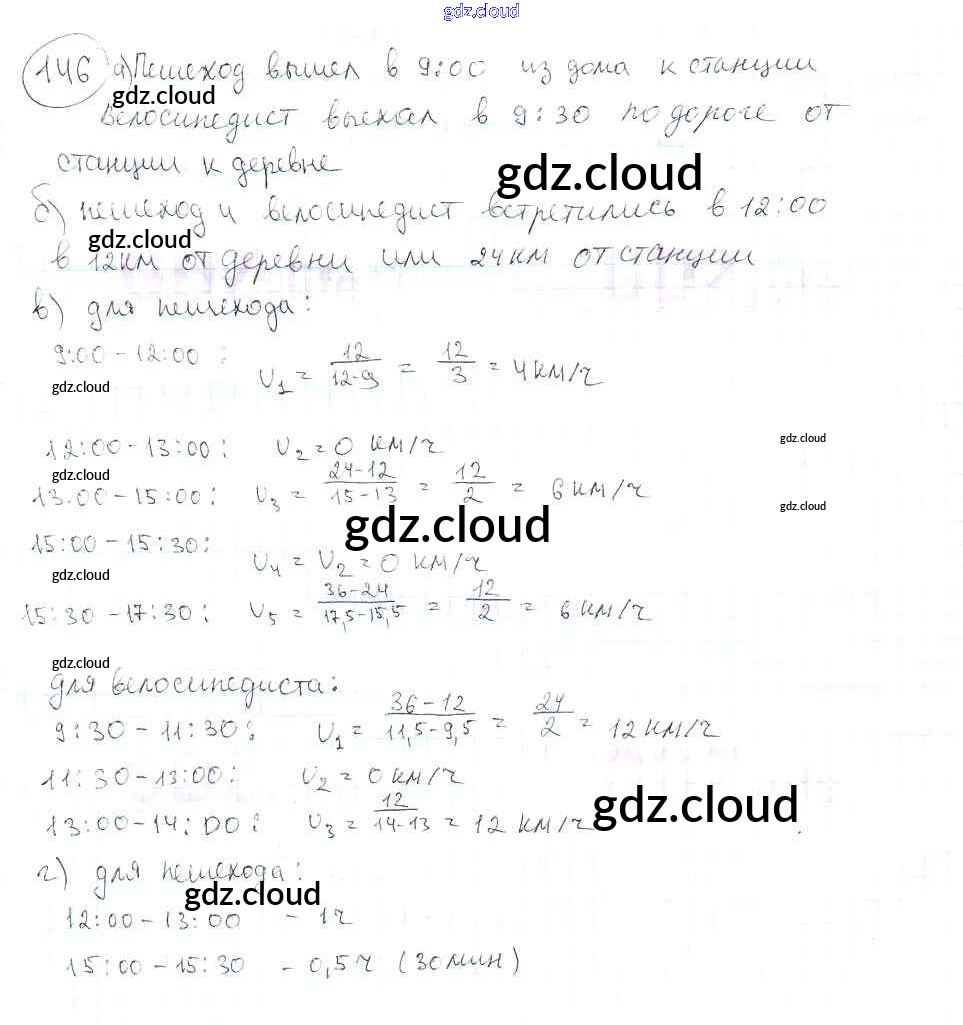 gdz.cloud
146 а) Пешеход вышел в 9:00 из дома к станции
gdz.cloud
Велосипедист выехал в 9:30 по дороге от
станции к деревне
gdz.cloud
б) пешеход и велосипедист встретились в 12:00
gdz.cloud
в 12 км от деревни или 24 км от станции
в) для пешехода:
9:00 - 12:00 : U₁ = 12/(12-9) = 12/3 = 4 км/ч
gdz.cloud
12:00 - 13:00 : U₂ = 0 км/ч
gdz.cloud
gdz.cloud
13.00 - 15:00 : U₃ = (24-12)/(15-13) = 12/2 = 6 км/ч
gdz.cloud
gdz.cloud
15:00 - 15:30 : U₄ = U₂ = 0 км/ч
gdz.cloud
15:30 - 17:30 : U₅ = (36-24)/(17,5-15,5) = 12/2 = 6 км/ч
gdz.cloud
для велосипедиста:
9:30 - 11:30 : U₁ = (36-12)/(11,5-9,5) = 24/2 = 12 км/ч
11:30 - 13:00 : U₂ = 0 км/ч
gdz.cloud
13:00 - 14:00 : U₃ = 12/(14-13) = 12 км/ч
г) для пешехода:
gdz.cloud
12:00 - 13:00 - 1ч
15:00 - 15:30 - 0,5 ч (30 мин)